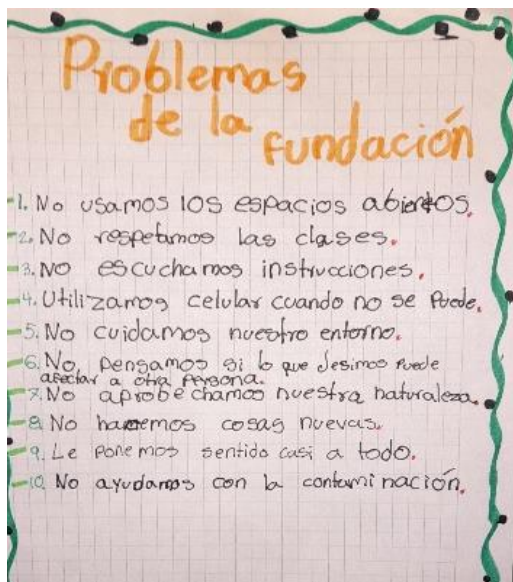 Problemas
de la
fundación
1. No usamos los espacios abiertos.
2. No respetamos las clases.
3. No escuchamos instrucciones.
4. Utilizamos celular cuando no se puede.
5. No cuidamos nuestro entorno.
6. No pensamos si lo que desimos puede
afectar a otra persona.
7. No aprobechamos nuestra naturaleza.
8. No hacemos cosas nuevas.
9. Le ponemos sentido casi a todo.
10. No ayudamos con la contaminación.